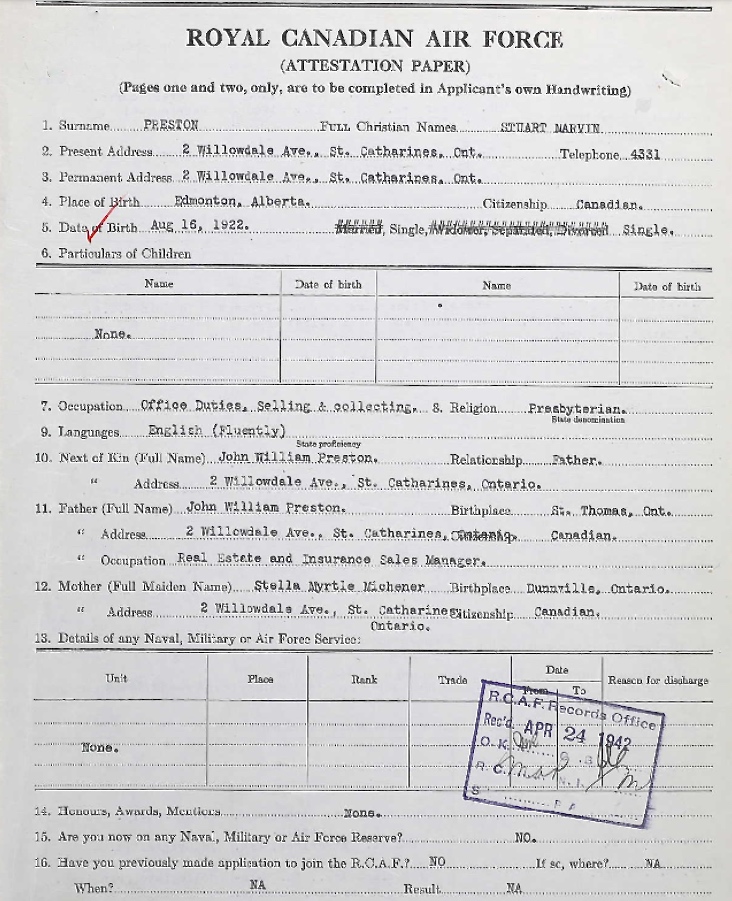 ROYAL CANADIAN AIR FORCE
(ATTESTATION PAPER)
(Pages one and two, only, are to be completed in Applicant's own Handwriting)
1. Surname PRESTON FULL Christian Names STUART MARVIN
2. Present Address 2 Willowdale Ave., St. Catharines, Ont. Telephone 4331
3. Permanent Address 2 Willowdale Ave., St. Catharines, Ont.
4. Place of Birth Edmonton, Alberta. Citizenship Canadian.
5. Date of Birth Aug 16, 1922. Married, Single, Widower, Separated, Divorced Single.
6. Particulars of Children
Name Date of birth Name Date of birth
None.
7. Occupation Office Duties, Selling & collecting. 8. Religion Presbyterian.
State denomination
9. Languages English (Fluently)
State proficiency
10. Next of Kin (Full Name) John William Preston. Relationship Father.
" Address 2 Willowdale Ave., St. Catharines, Ontario.
11. Father (Full Name) John William Preston. Birthplace St. Thomas, Ont.
" Address 2 Willowdale Ave., St. Catharines, Ontario. Canadian.
" Occupation Real Estate and Insurance Sales Manager.
12. Mother (Full Maiden Name) Stella Myrtle Michener Birthplace Dunnville, Ontario.
" Address 2 Willowdale Ave., St. Catharines Citizenship Canadian.
Ontario.
13. Details of any Naval, Military or Air Force Service:
Unit Place Rank Trade Date Reason for discharge
From To
None.
R.C.A.F. Records Office
Rec'd APR 24 1942
O.K.
R.C.
S
14. Honours, Awards, Mentions None.
15. Are you now on any Naval, Military or Air Force Reserve? NO.
16. Have you previously made application to join the R.C.A.F.? NO If so, where? NA
When? NA Result NA